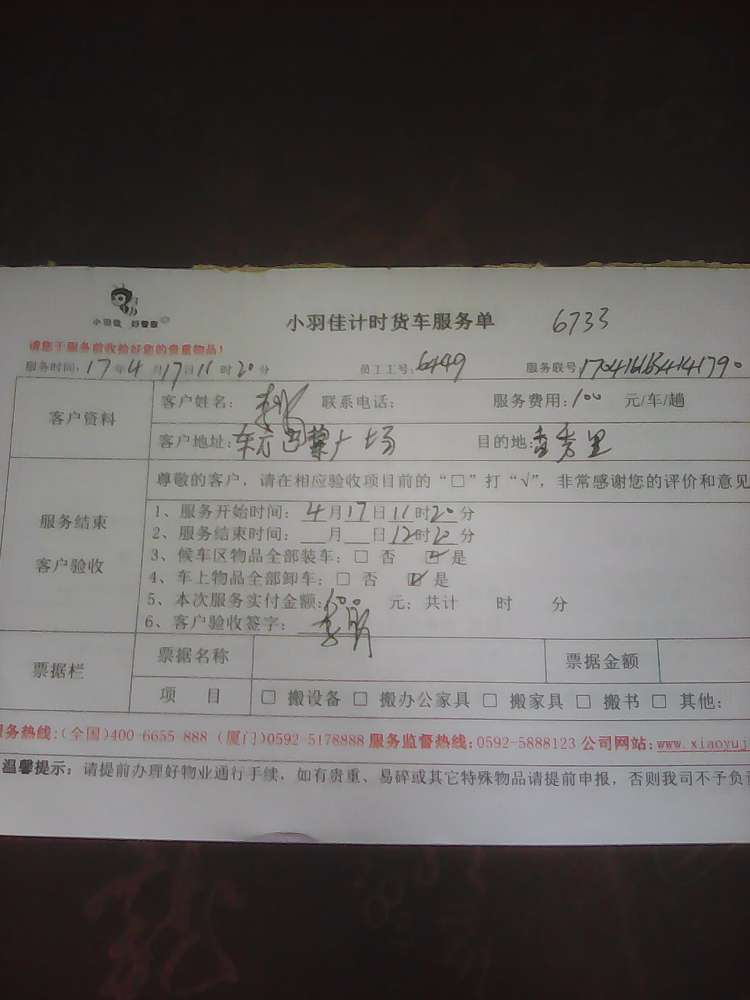 小羽佳 好管家
小羽佳计时货车服务单 6733
请您于服务前收捡好您的贵重物品!
服务时间:17年4月17日11时20分 员工工号:6449 服务联号
客户资料
客户姓名: 联系电话: 服务费用:100 元/车/趟
客户地址: 广场 目的地: 秀里
服务结束
客户验收
尊敬的客户,请在相应验收项目前的“□”打“√”,非常感谢您的评价和意见
1、服务开始时间:4月17日11时20分
2、服务结束时间:__月__日12时20分
3、候车区物品全部装车:□ 否 ☑ 是
4、车上物品全部卸车:□ 否 ☑ 是
5、本次服务实付金额:100 元;共计 时 分
6、客户验收签字:
票据栏
票据名称 票据金额
项 目 □ 搬设备 □ 搬办公家具 □ 搬家具 □ 搬书 □ 其他:
服务热线:(全国)400-6655-888 (厦门)0592-5178888 服务监督热线:0592-5888123 公司网站:www.xiaoyuj
温馨提示:请提前办理好物业通行手续,如有贵重、易碎或其它特殊物品请提前申报,否则我司不予负